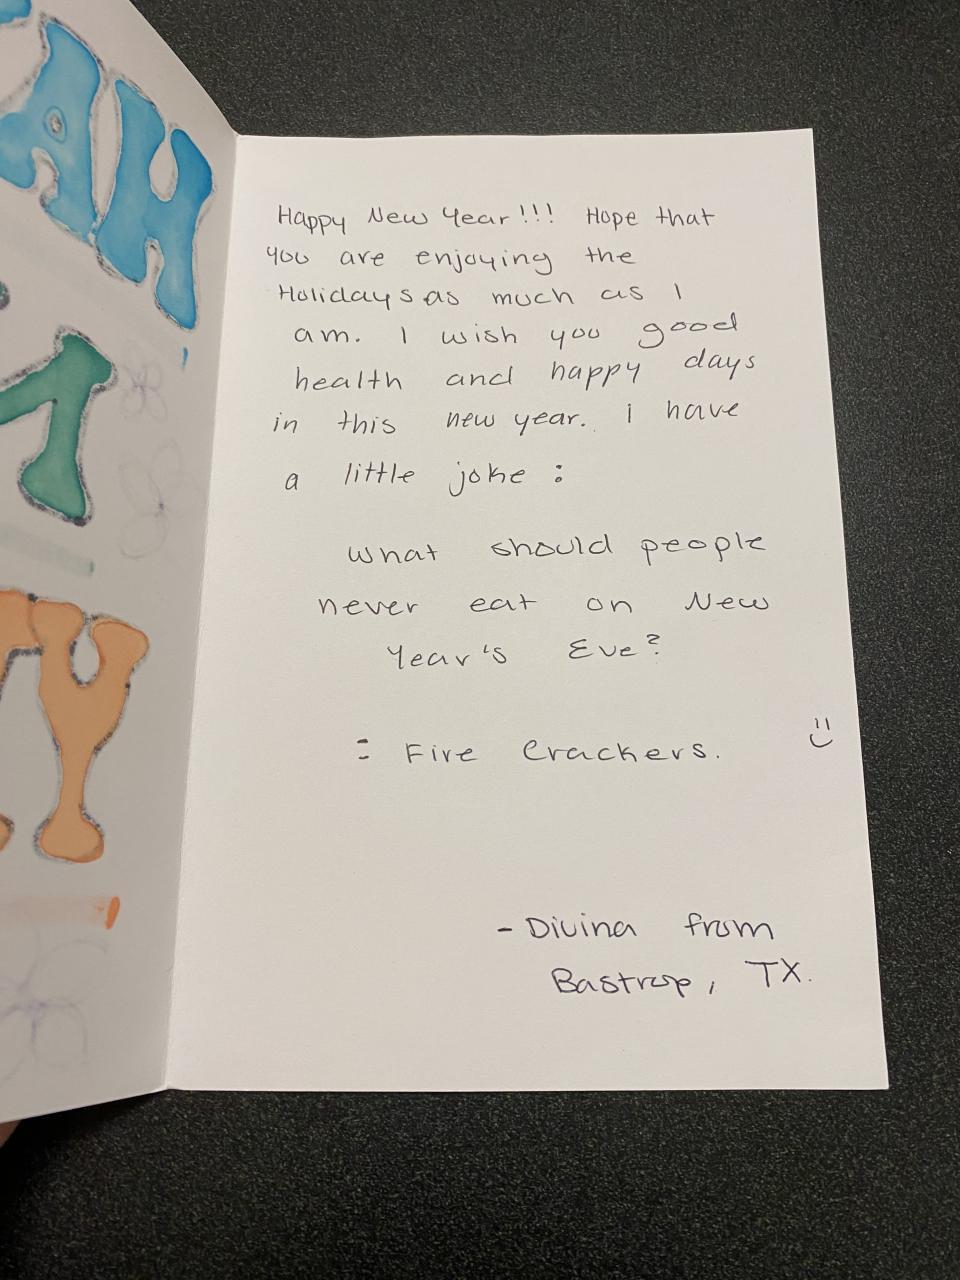 AH
TY
Happy New Year!!! Hope that
you are enjoying the
Holidays as much as I
am. I wish you good
health and happy days
in this new year. i have
a little joke :
What should people
never eat on New
Year's Eve?
= Fire Crackers. :)
- Divina from
Bastrop, TX.